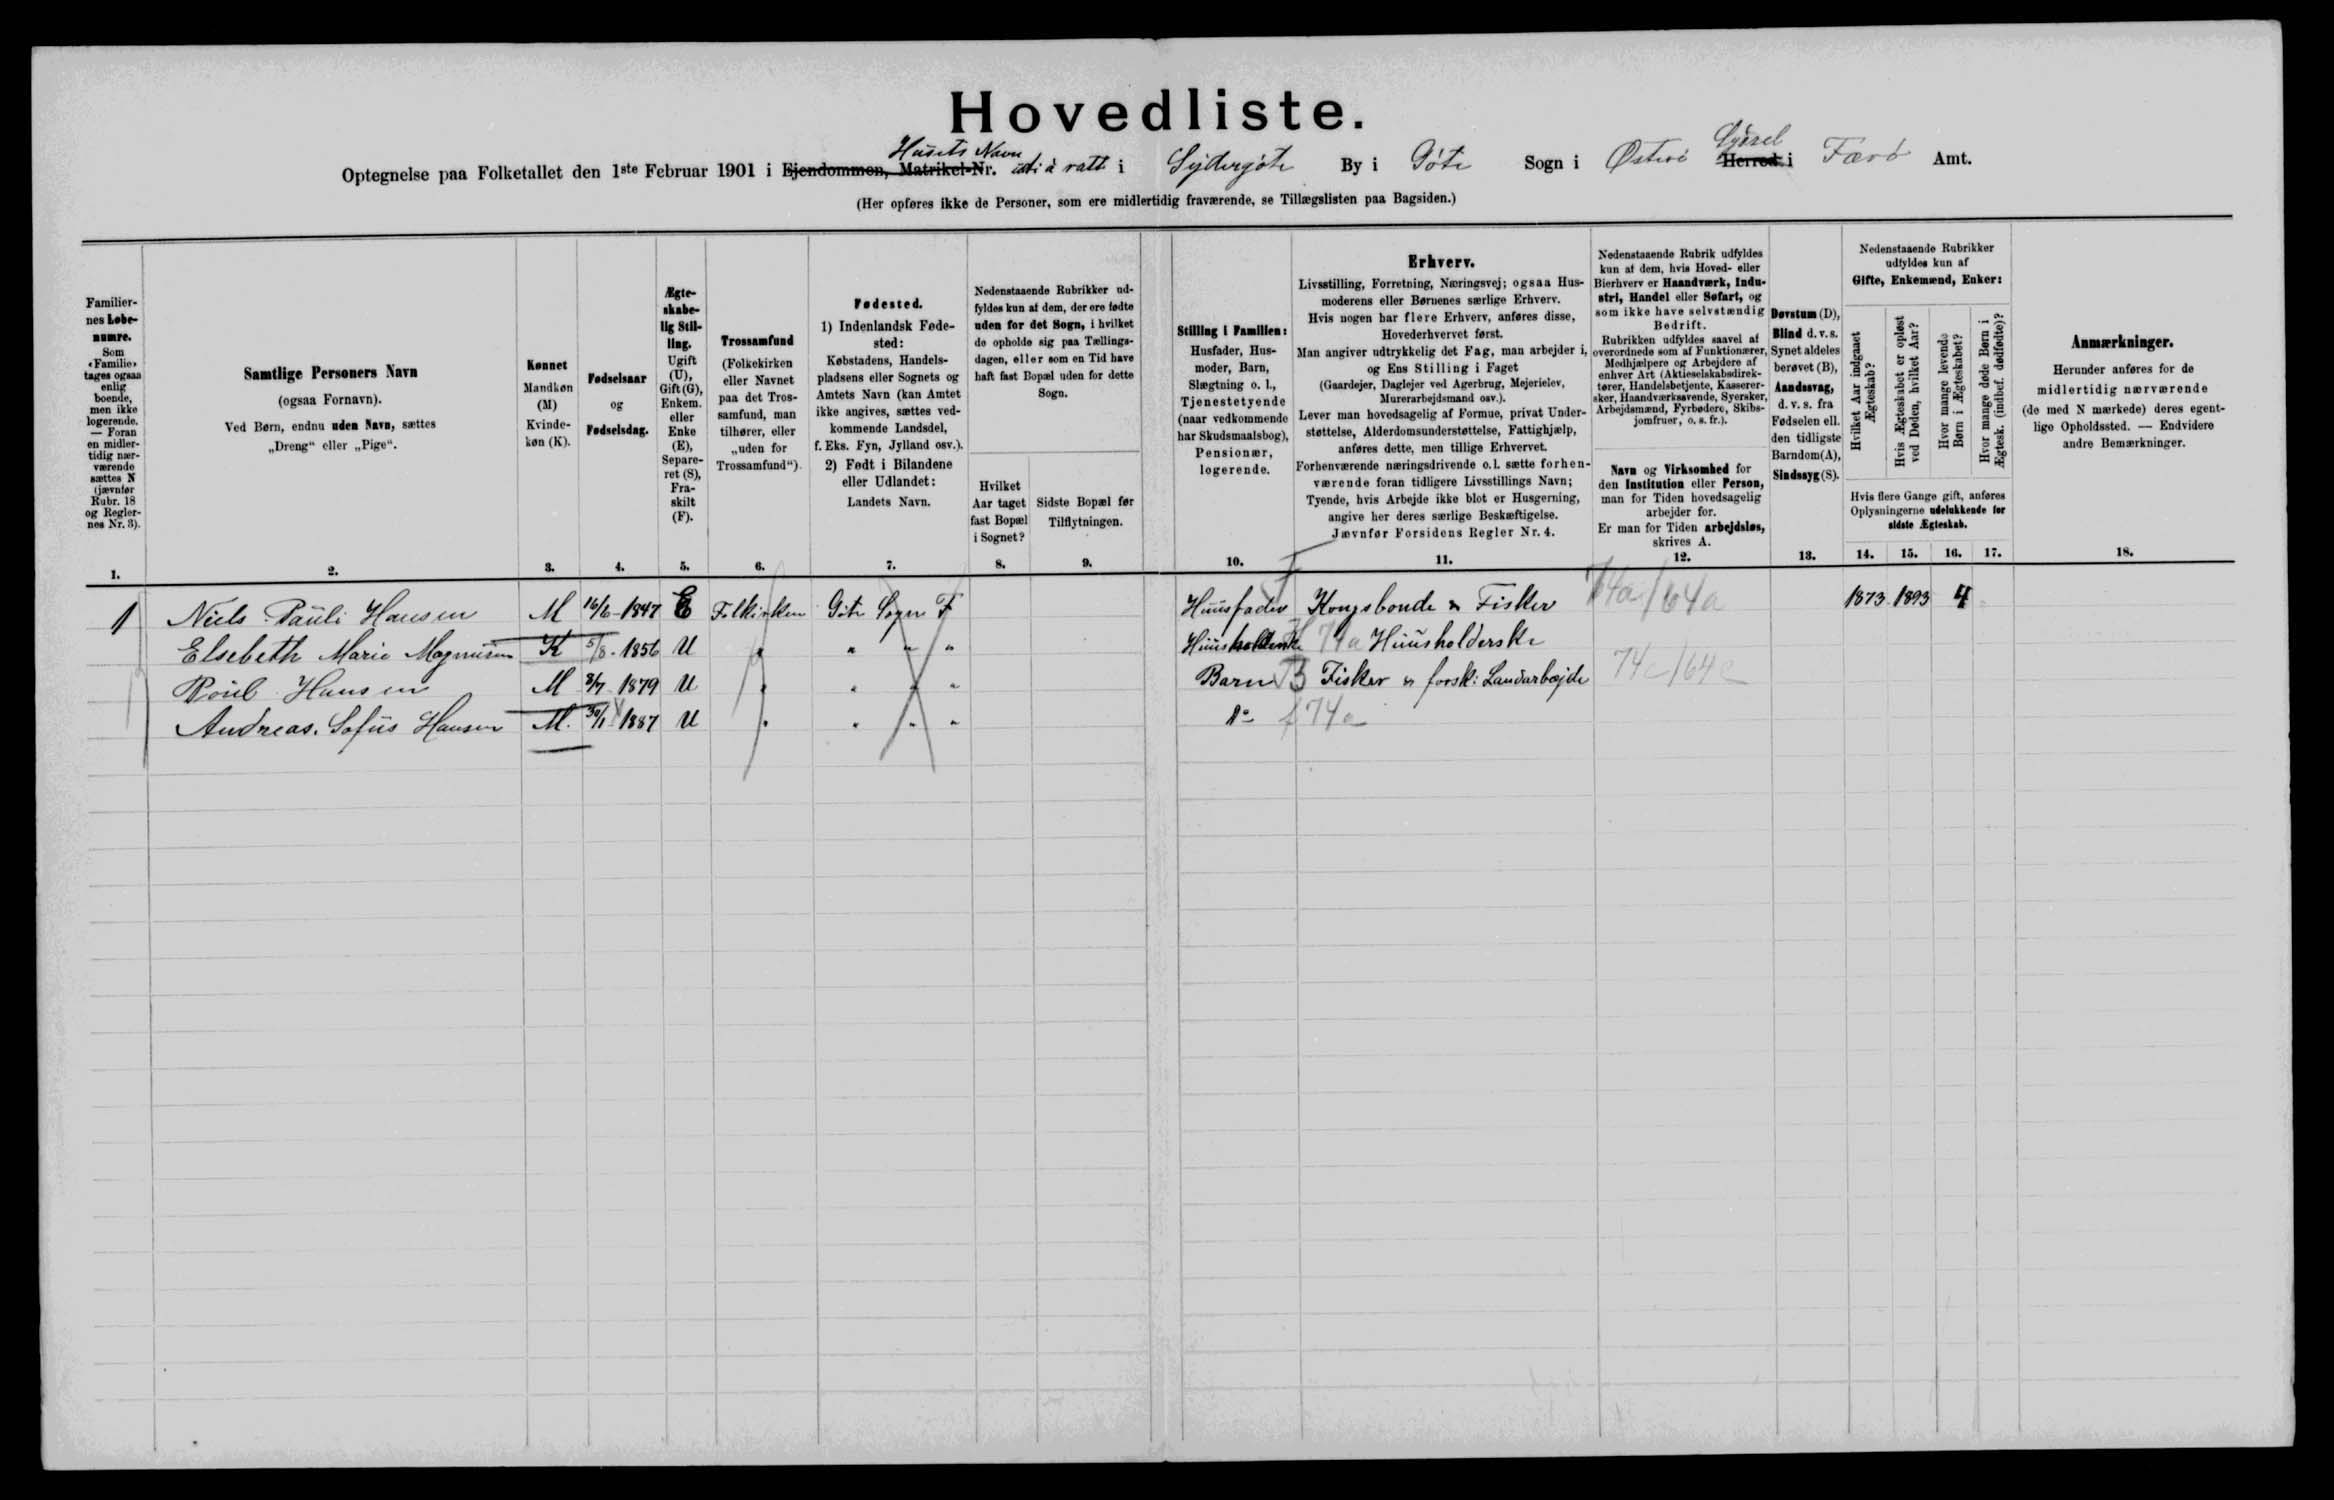 Hovedliste.
Husets Navn
Syssel
Optegnelse paa Folketallet den 1ste Februar 1901 i Ejendommen, Matrikel-Nr. i Sydergøte By i Gøte Sogn i Østerø Herred i Færø Amt.
(Her opføres ikke de Personer, som ere midlertidig fraværende, se Tillægslisten paa Bagsiden.)
Familier-
nes Løbe-
numre.
Som
«Familie»
tages ogsaa
enlig
boende,
men ikke
logerende.
— Foran
en midler-
tidig nær-
værende
sættes N
(jævnfør
Rubr. 18
og Regler-
nes Nr. 3).
1.
Samtlige Personers Navn
(ogsaa Fornavn).
Ved Børn, endnu uden Navn, sættes
„Dreng“ eller „Pige“.
2.
Kønnet
Mandkøn
(M)
Kvinde-
køn (K).
3.
Fødselsaar
og
Fødselsdag.
4.
Ægte-
skabe-
lig Stil-
ling.
Ugift
(U),
Gift (G),
Enkem.
eller
Enke
(E),
Separe-
ret (S),
Fra-
skilt
(F).
5.
Trossamfund
(Folkekirken
eller Navnet
paa det Tros-
samfund, man
tilhører, eller
„uden for
Trossamfund“).
6.
Fødested.
1) Indenlandsk Føde-
sted:
Købstadens, Handels-
pladsens eller Sognets og
Amtets Navn (kan Amtet
ikke angives, sættes ved-
kommende Landsdel,
f. Eks. Fyn, Jylland osv.).
2) Født i Bilandene
eller Udlandet:
Landets Navn.
7.
Nedenstaaende Rubrikker ud-
fyldes kun af dem, der ere fødte
uden for det Sogn, i hvilket
de opholde sig paa Tællings-
dagen, eller som en Tid have
haft fast Bopæl uden for dette
Sogn.
Hvilket
Aar taget
fast Bopæl
i Sognet?
8.
Sidste Bopæl før
Tilflytningen.
9.
Stilling i Familien:
Husfader, Hus-
moder, Barn,
Slægtning o. l.,
Tjenestetyende
(naar vedkommende
har Skudsmaalsbog),
Pensionær,
logerende.
10.
Erhverv.
Livsstilling, Forretning, Næringsvej; ogsaa Hus-
moderens eller Børnenes særlige Erhverv.
Hvis nogen har flere Erhverv, anføres disse,
Hovederhvervet først.
Man angiver udtrykkelig det Fag, man arbejder i,
og Ens Stilling i Faget
(Gaardejer, Daglejer ved Agerbrug, Mejerielev,
Murerarbejdsmand osv.).
Lever man hovedsagelig af Formue, privat Under-
støttelse, Alderdomsunderstøttelse, Fattighjælp,
anføres dette, men tillige Erhvervet.
Forhenværende næringsdrivende o. l. sætte forhen-
værende foran tidligere Livsstillings Navn;
Tyende, hvis Arbejde ikke blot er Husgerning,
angive her deres særlige Beskæftigelse.
Jævnfør Forsidens Regler Nr. 4.
11.
Nedenstaaende Rubrik udfyldes
kun af dem, hvis Hoved- eller
Bierhverv er Haandværk, Indu-
stri, Handel eller Søfart, og
som ikke have selvstændig
Bedrift.
Rubrikken udfyldes saavel af
overordnede som af Funktionærer,
Medhjælpere og Arbejdere af
enhver Art (Aktieselskabsdirek-
tører, Handelsbetjente, Kasserer-
sker, Haandværkssvende, Syersker,
Arbejdsmænd, Fyrbødere, Skibs-
jomfruer, o. s. fr.).
Navn og Virksomhed for
den Institution eller Person,
man for Tiden hovedsagelig
arbejder for.
Er man for Tiden arbejdsløs,
skrives A.
12.
Døvstum (D),
Blind d. v. s.
Synet aldeles
berøvet (B),
Aandssvag,
d. v. s. fra
Fødselen ell.
den tidligste
Barndom (A),
Sindssyg (S).
13.
Nedenstaaende Rubrikker
udfyldes kun af
Gifte, Enkemænd, Enker:
Hvilket Aar indgaaet
Ægteskab?
Hvis Ægteskabet er opløst
ved Døden, hvilket Aar?
Hvor mange levende
Børn i Ægteskabet?
Hvor mange døde Børn i
Ægtesk. (indbef. dødfødte)?
Hvis flere Gange gift, anføres
Oplysningerne udelukkende for
sidste Ægteskab.
14. 15. 16. 17.
Anmærkninger.
Herunder anføres for de
midlertidig nærværende
(de med N mærkede) deres egent-
lige Opholdssted. — Endvidere
andre Bemærkninger.
18.
1 Niels Pauli Hansen M 16/6 1847 E Folkirken Göte Sogn F Huusfader Kongsbonde & Fisker 74a/64a 1873 1893 4
Elsebeth Marie Magnusen K 5/8 1856 U " " " " 74a Huusholderske
Poul Hansen M 8/7 1879 U " " " " Barn B Fisker & forsk: Landarbejde 74c/64c
Andreas Sofus Hansen M. 30/1 1887 U " " " " Do f 74a